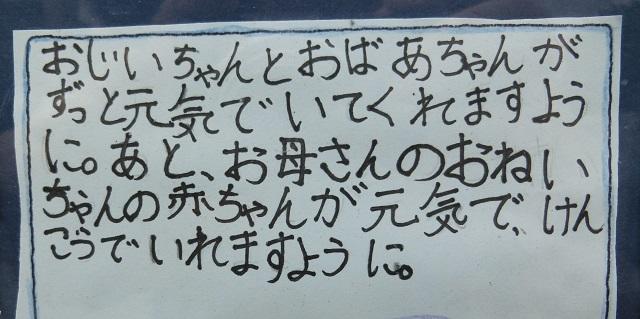 おじいちゃんとおばあちゃんが
ずっと元気でいてくれますよう
に。あと、お母さんのおねい
ちゃんの赤ちゃんが元気で、けん
こうでいれますように。